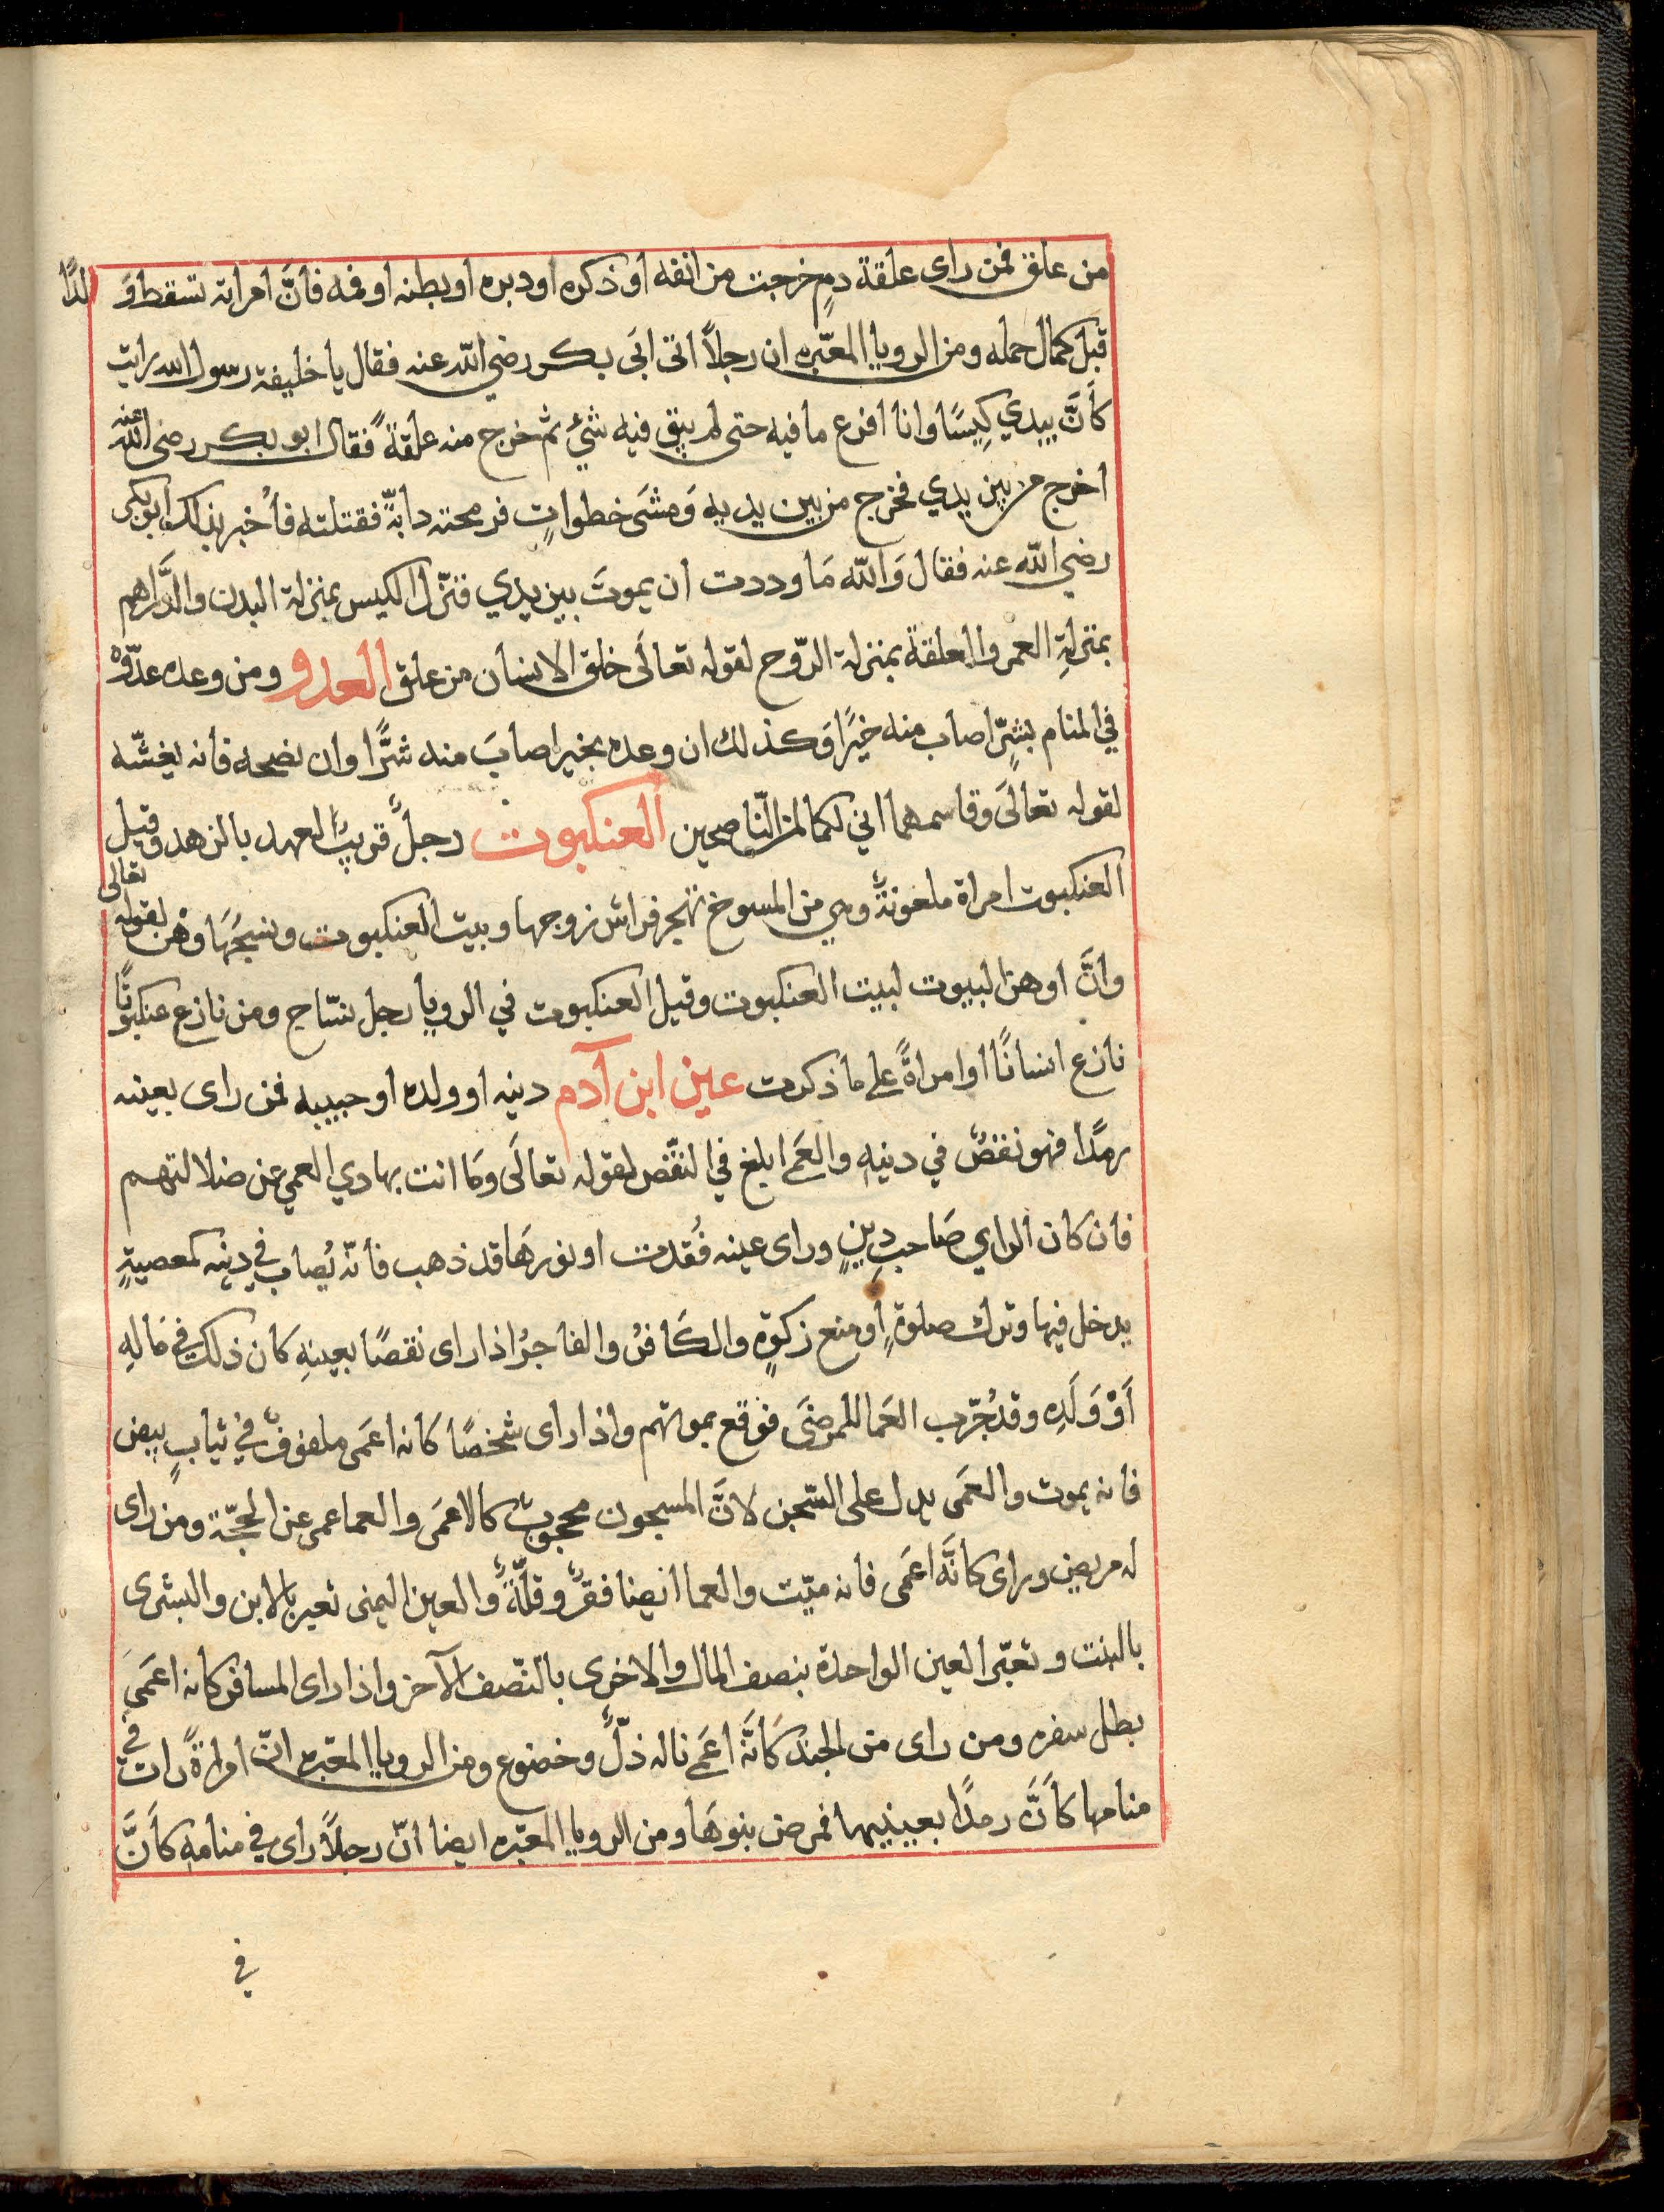 من علق فمن راى علقة دمٍ خرجت من انفه او ذكره او دبره او بطنه او فمه فانَّ امراته تسقط وَلدًا
قبل كمال حمله ومن الرويا المعبّره ان رجلاً اتى ابَي بكر رضي الله عنه فقال يا خليفة رسول الله رايت
كاَنَّ بيدي كِيسًا وانا افرع ما فيه حتى لم يبق فيه شئ ثم خرج منه علقةً فقال ابو بكر رضي الله عنه
اخرج من بين يدي فخرج من بين يديه وَمشَى خطواتٍ فرمحته دابةّ فقتلته فأخبر بذلك ابو بكر
رضي الله عنه فقال وَالله مَا وددت ان يموتَ بين يدي فنزّل الكيس بمنزلة البدن والدَّراهم
بمنزلةِ العمر والعلقة بمنزلة الرّوح لقوله تعالَى خلق الانسان من علق العدو ومن وعده عدّوّهُ
في المنام بشرٍّ اصاب منه خيرًا وَكذلك ان وعده بخير اصابَ منه شرًّا وان نصحه فانه يغشّه
لقوله تعالَى وقاسمهما اني لكما لمن النّاصحين العنكبوت رجلٌ قريبُ العهد بالزهد وقيل
العنكبوت امراة ملعونةٌ وهي من المسوخ تهجر فراش زوجها وبيت العنكبوت ونسيجُهَا وهْن لقوله تعالى
وانَّ اوهن البيوت لبيت العنكبوت وقيل العنكبوت في الرويا رجل نسّاج ومن نازع عنكبوتًا
نازع انسانًا او امراةً على ما ذكرت عين ابن آدم دينه او ولده او حبيبه فمن راى بعينه
رمدًا فهو نقصٌ في دينهِ والعَمى ابلغ في النقّص لقوله تعالَى وَما انت بهادي العمي عن ضلالتهم
فان كان الراي صَاحب دِينٍ وراى عينه فُقدت او نورهَا قد ذهب فانّه يُصاب في دينه كمعصيةٍ
يدخل فيها وترك صلوةٍ او منع زكوةٍ والكَافرُ والفاجرُ اذا راى نقصًا بعينهِ كان ذلك في مَالهِ
اَوْ وَلَدِه وقد جُرّب العَما للمرضَى فوقع بموتهم واذا راى شخصًا كَانه اعمَى ملفوفٌ في ثيابٍ بيض
فانه يموت والعمَى يدل على السّجن لانَّ المسجون محجوبٌ كالاعمَى والعما عمى عن الحجّة ومن راى
له مريض وراى كانَّه اعمَى فانه ميّت والعما ايضا فقرٌ وقلّةٌ والعين اليمنى تعبر بالابن واليسرى
بالبنت وتعبّر العين الواحدة بنصف المال والاخرى بالنّصف الآخر واذا راى المسافر كانه اعمَى
بطل سفره ومن راى من الجند كاَنَّه اعمَى ناله ذلّ وخضوع ومن الرويا المعبّره انّ امراةً رات في
منامها كاَنَّ رمدًا بعينيها فمرض بنوهَا ومن الرويا المعبّره ايضا انّ رجلاً راى في منامهِ كاَنَّ
في